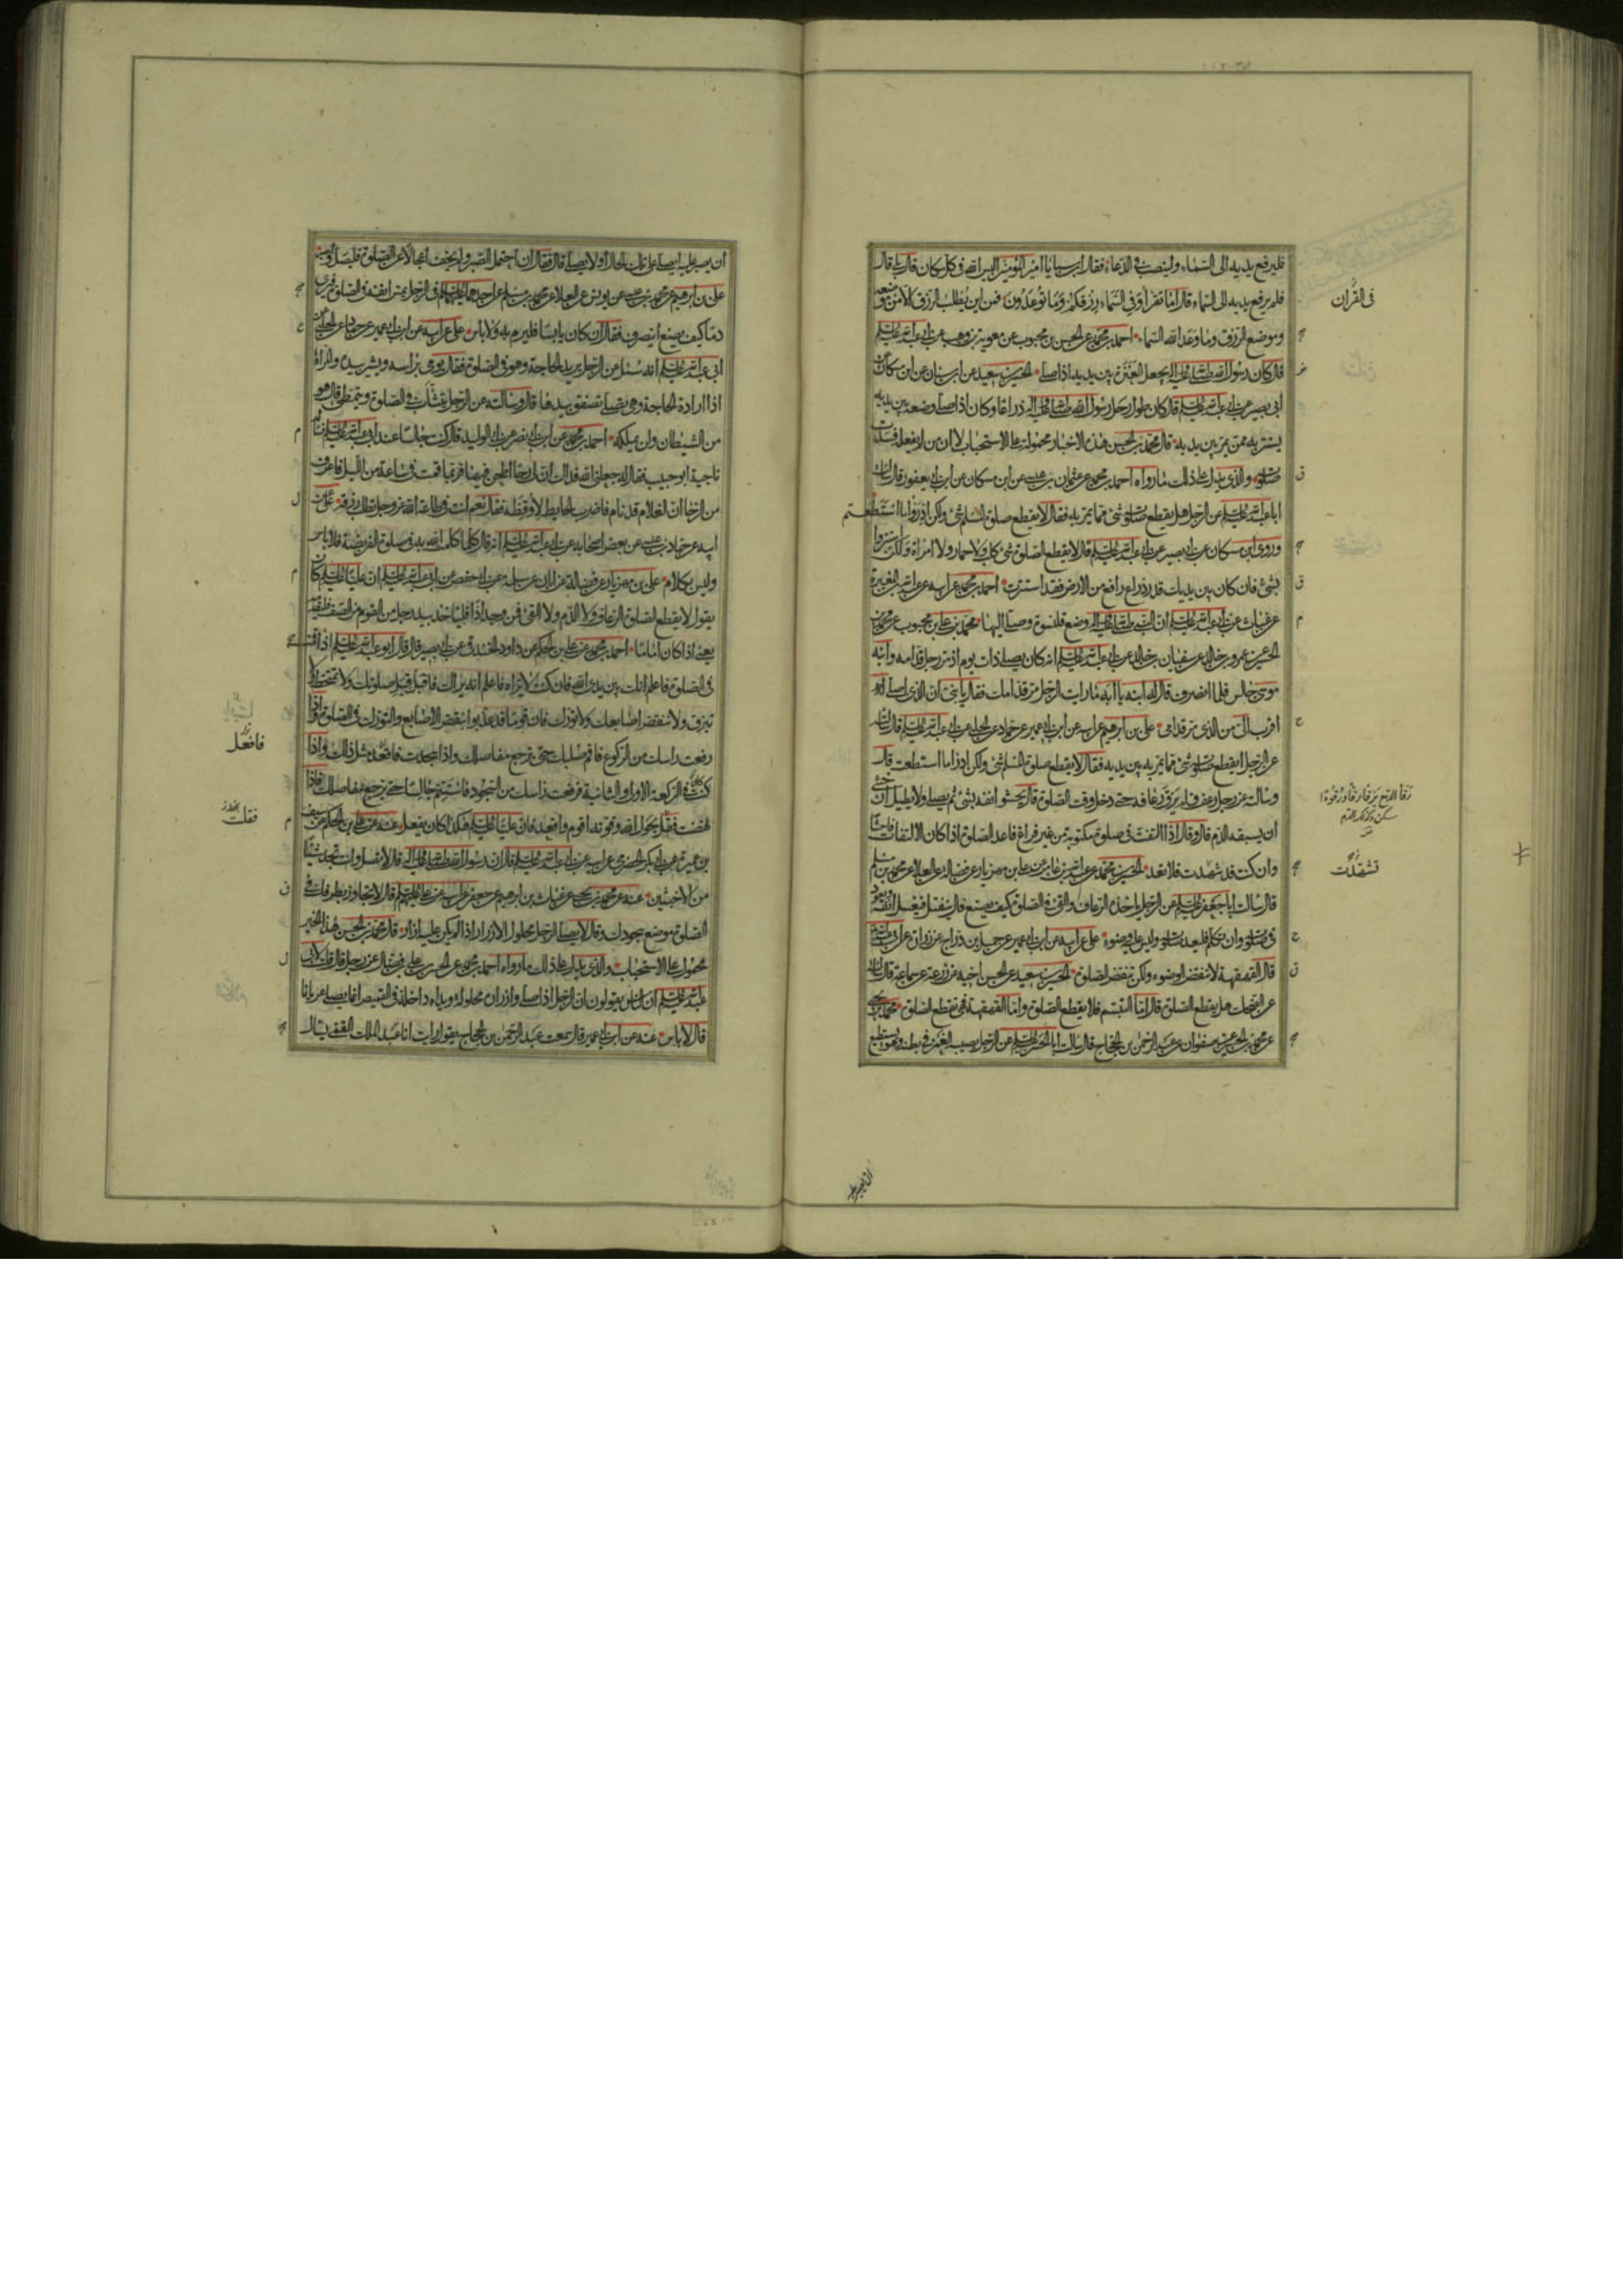 فليرفع يديه الى السماء ولينصب فى الدعاء فقال ابن سبا يا امير المؤمنين اليس الله فى كل مكان قال بلى قال
فلم يرفع يديه الى السماء قال اما تقرأ وفي السماء رزقكم وما توعدون فمن اين يطلب الرزق الا من موضعه
وموضع الرزق وما وعد الله السماء احمد بن محمد عن الحسن بن محبوب عن معوية بن وهب عن ابى عبد الله عليه السلم
قال كان رسول الله صلى الله عليه واله يجعل العنزة بين يديه اذا صلى الحسين بن سعيد عن ابن سنان عن ابن مسكان عن
ابى بصير عن ابى عبد الله عليه السلم قال كان طول رحل رسول الله صلى الله عليه واله ذراعا وكان اذا صلى وضعه بين يديه
يستتر به ممن يمر بين يديه قال محمد بن الحسن هذه الاخبار محمولة على الاستحباب لا ان من لم يفعله فسدت
صلوته والذى يدل على ذلك ما رواه احمد بن محمد عن عثمان بن عيسى عن ابن مسكان عن ابن ابى يعفور قال سالت
ابا عبد الله عليه السلم عن الرجل هل يقطع صلوته شئ مما يمر به فقال لا يقطع صلوة المسلم شئ ولكن ادرؤا ما استطعتم
وروى ابن مسكان عن ابى بصير عن ابى عبد الله عليه السلم قال لا يقطع الصلوة شئ كلب ولا حمار ولا امراة ولكن استتروا
بشئ فان كان بين يديك قدر ذراع رافع من الارض فقد استترت احمد بن محمد عن ابيه عن عبد الله بن المغيرة
عن غياث عن ابى عبد الله عليه السلم ان النبى صلى الله عليه واله وضع قلنسوة وصلى اليها محمد بن على بن محبوب عن محمد بن
الحسين عن عمرو بن خالد عن سفيان بن خالد عن ابى عبد الله عليه السلم انه كان يصلى ذات يوم اذ مر رجل قدامه وابنه
موسى جالس فلما انصرف قال له ابنه يا ابه ما رايت الرجل مر قدامك فقال يا بنى ان الذى اصلى له
اقرب الى من الذى مر قدامى على بن ابرهيم عن ابيه عن ابن ابى عمير عن حماد عن الحلبى عن ابى عبد الله عليه السلم قال سالته
عن الرجل ايقطع صلوته شئ مما يمر به بين يديه فقال لا يقطع صلوة المسلم شئ ولكن ادرا ما استطعت قال
وسالته عن رجل رعف فلم يرق رعافه حتى دخل وقت الصلوة قال يحشو انفه بشئ ثم يصلى ولا يطيل ان خشى
ان يسبقه الدم قال وقال اذا التفت فى صلوة مكتوبة من غير فراغ فاعد الصلوة اذا كان الالتفات فاحشا
وان كنت قد تشهدت فلا تعد الحسين بن محمد عن عبد الله بن عامر عن على بن مهزيار عن فضالة عن العلا عن محمد بن مسلم
قال سالت ابا جعفر عليه السلم عن الرجل ياخذه الرعاف والقئ فى الصلوة كيف يصنع قال ينفتل فيغسل انفه ويعود
فى صلوته وان تكلم فليعد صلوته وليس عليه وضوء على عن ابيه عن ابن ابى عمير عن جميل بن دراج عن زرارة عن ابى عبد الله
قال القهقهة لا تنقض الوضوء ولكن تنقض الصلوة الحسين بن سعيد عن الحسن اخيه عن زرعة عن سماعة قال سالته
عن الضحك هل يقطع الصلوة قال اما التبسم فلا يقطع الصلوة واما القهقهة فهى تقطع الصلوة محمد بن يحيى
عن محمد بن الحسين عن صفوان عن عبد الرحمن بن الحجاج قال سالت ابا الحسن عليه السلم عن الرجل يصيبه الغمز فى بطنه وهو يستطيع
فى القرآن
تشهدت
ان يصبر
ان يصبر عليه ايصلى على تلك الحال او لا يصلى قال فقال ان احتمل الصبر ولم يخف اعجالا عن الصلوة فليصل وليصبر
على بن ابرهيم عن محمد بن عيسى عن يونس عن العلا عن محمد بن مسلم عن احدهما عليهما السلم فى الرجل يمس انفه فى الصلوة فيرى
دما كيف يصنع اينصرف فقال ان كان يابسا فليرم به ولا باس على عن ابيه عن ابن ابى عمير عن حماد عن الحلبى عن
ابى عبد الله عليه السلم انه سئل عن الرجل يريد الحاجة وهو فى الصلوة فقال يومى براسه ويشير بيده والمراة
اذا ارادة الحاجة وهى تصلى تصفق بيدها قال وسالته عن الرجل يتثاب فى الصلوة ويتمطى قال هو
من الشيطان ولن يملكه احمد بن محمد عن ابن ابى نصر عن ابى الوليد قال كنت جالسا عند ابى عبد الله عليه السلم فساله
ناجية ابو حبيب فقال له جعلنى الله فداك ان لى رحا اطحن فيها فربما قمت فى ساعة من الليل فاعرف
من الرحا ان الغلام قد نام فاضرب الحايط لاوقظه فقال نعم انت فى طاعة الله عز وجل تطلب رزقه على عن
ابيه عن حماد بن عيسى عن بعض اصحابه عن ابى عبد الله عليه السلم انه قال كلما كلمت الله به فى صلوة الفريضة فلا باس
وليس بكلام على بن مهزيار عن فضالة عن ابان عن سلمة عن ابى حفص عن ابى عبد الله عليه السلم ان عليا عليه السلم كان
يقول لا يقطع الصلوة الرعاف ولا الدم ولا القئ فمن وجد اذا فلياخذ بيد رجل من القوم من الصف فليقدمه
يعنى اذا كان اماما احمد بن محمد عن على بن الحكم عن داود الخندقى عن ابى بصير قال قال ابو عبد الله عليه السلم اذا قمت
فى الصلوة فاعلم انك بين يدى الله فان كنت لا تراه فاعلم انه يراك فاقبل قبل صلوتك ولا تمتخط ولا
تبزق ولا تنقض اصابعك ولا تورك فان قوما قد عذبوا بنقض الاصابع والتورك فى الصلوة واذا
رفعت راسك من الركوع فاقم صلبك حتى ترجع مفاصلك واذا سجدت فاقعد مثل ذلك واذا
كنت فى الركعة الاولى والثانية فرفعت راسك من السجود فاستتم جالسا حتى ترجع مفاصلك فاذا
نهضت فقل بحول الله وقوته اقوم واقعد فان عليا عليه السلم هكذا كان يفعل عنه عن على بن الحكم عن سيف
بن عميرة عن ابى بكر الحضرمى عن ابيه عن ابى عبد الله عليه السلم قال ان رسول الله صلى الله عليه واله قال لا تصل وانت تجد شيئا
من الاخبثين عنه عن محمد بن يحيى عن غياث بن ابرهيم عن جعفر عن ابيه عن على عليهم السلم قال لا تجاوز بطرفك فى
الصلوة موضع سجودك وقال لا يصلى الرجل محلول الازرار اذا لم يكن عليه ازار قال محمد بن الحسن هذا الخبر
محمول على الاستحباب والذى يدل على ذلك ما رواه احمد بن محمد عن الحسن بن على بن فضال عن رجل قال قلت لابى
عبد الله عليه السلم ان الناس يقولون ان الرجل اذا صلى وازراره محلولة ويداه داخلة فى القميص انما يصلى عريانا
قال لا باس عنه عن ابن ابى عمير قال سمعت عبد الرحمن بن الحجاج يقول رايت انا عبد الملك القمى يسال
فاقعد
فقلت